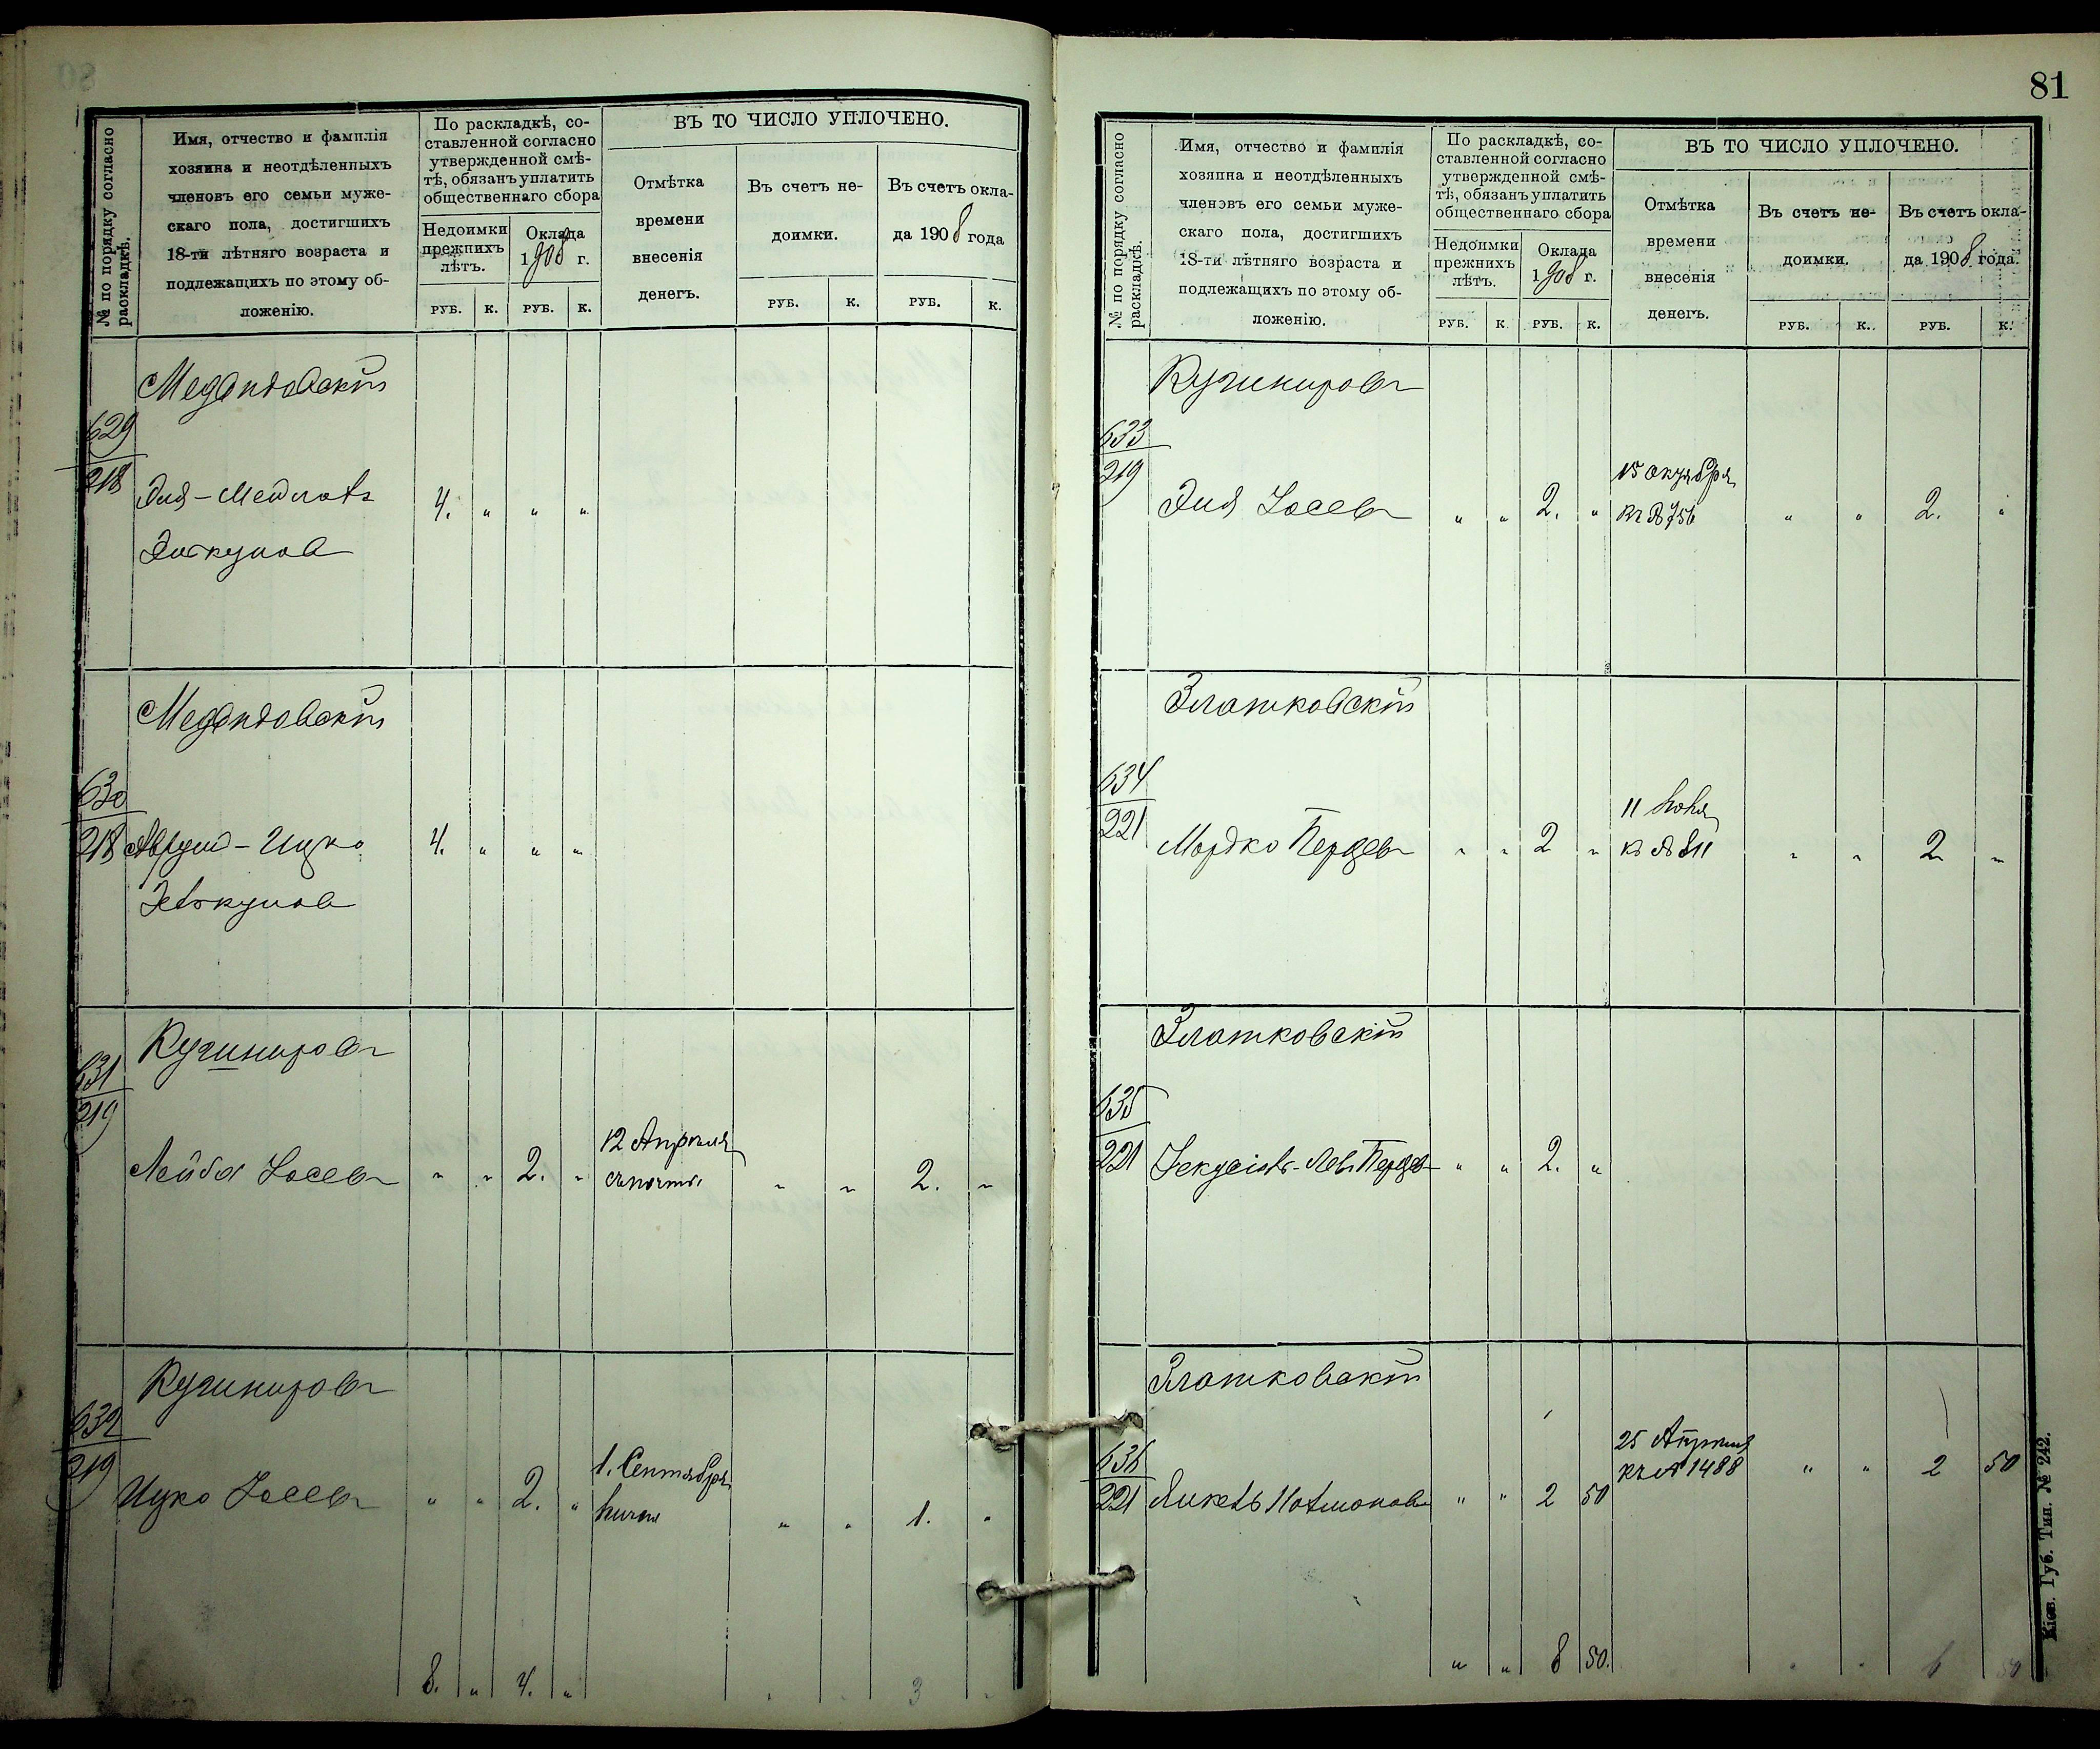 81
№ по порядку согласно раскладкѣ.
Имя, отчество и фамилія
хозяина и неотдѣленныхъ
членовъ его семьи муже-
скаго пола, достигшихъ
18-ти лѣтняго возраста и
подлежащихъ по этому об-
ложенію.
По раскладкѣ, со-
ставленной согласно
утвержденной смѣ-
тѣ, обязанъ уплатить
общественнаго сбора
Недоимки
прежнихъ
лѣтъ.
Оклада
1908 г.
ВЪ ТО ЧИСЛО УПЛОЧЕНО.
Отмѣтка
времени
внесенія
денегъ.
Въ счетъ не-
доимки.
Въ счетъ окла-
да 1908 года
РУБ. К. РУБ. К. РУБ. К. РУБ. К.
629
218
4. " " "
630
218
Аврум-Ицко
4. " " "
Кучинировъ
631
219
12 Апрѣля
Лейба Іосевъ " " 2. " " " 2. "
Кучинировъ
632
219
1. Сентября
Ицко Іосевъ " " 2. " " " 1. "
8. " 4. " " " 3 "
№ по порядку согласно раскладкѣ.
Имя, отчество и фамилія
хозяина и неотдѣленныхъ
членовъ его семьи муже-
скаго пола, достигшихъ
18-ти лѣтняго возраста и
подлежащихъ по этому об-
ложенію.
По раскладкѣ, со-
ставленной согласно
утвержденной смѣ-
тѣ, обязанъ уплатить
общественнаго сбора
Недоимки
прежнихъ
лѣтъ.
Оклада
1908 г.
ВЪ ТО ЧИСЛО УПЛОЧЕНО.
Отмѣтка
времени
внесенія
денегъ.
Въ счетъ не-
доимки.
Въ счетъ окла-
да 1908 года.
РУБ. К. РУБ. К. РУБ. К. РУБ. К.
Кучинировъ
633
219
15 октября
Эля Іосевъ " " 2. " кв № 756 " " 2. "
Златковскій
634
221
11 Іюня
Мордко Перцевъ " " 2 " кв № 811 " " 2 "
Златковскій
635
221
" " 2. "
Златковскій
636
221
25 Апрѣля
кв № 1488 " " 2 50
" " 2 50
" " 8 50. " " 6 50
Кіев. Губ. Тип. № 242.